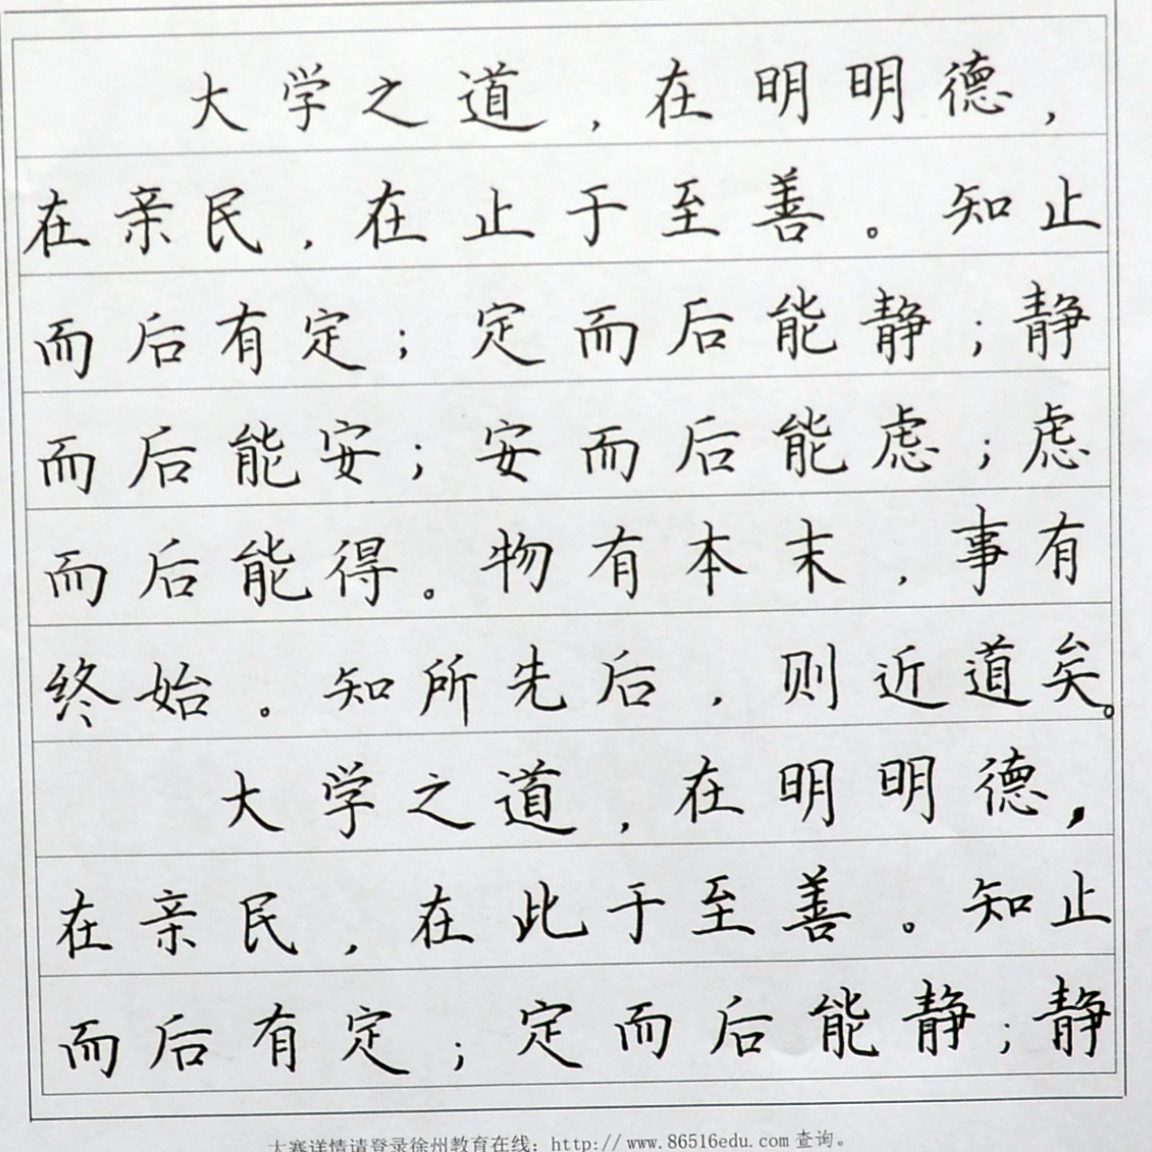 大学之道，在明明德，
在亲民，在止于至善。知止
而后有定；定而后能静；静
而后能安；安而后能虑；虑
而后能得。物有本末，事有
终始。知所先后，则近道矣。
大学之道，在明明德，
在亲民，在此于至善。知止
而后有定；定而后能静；静
大赛详情请登录徐州教育在线：http://www.86516edu.com查询。